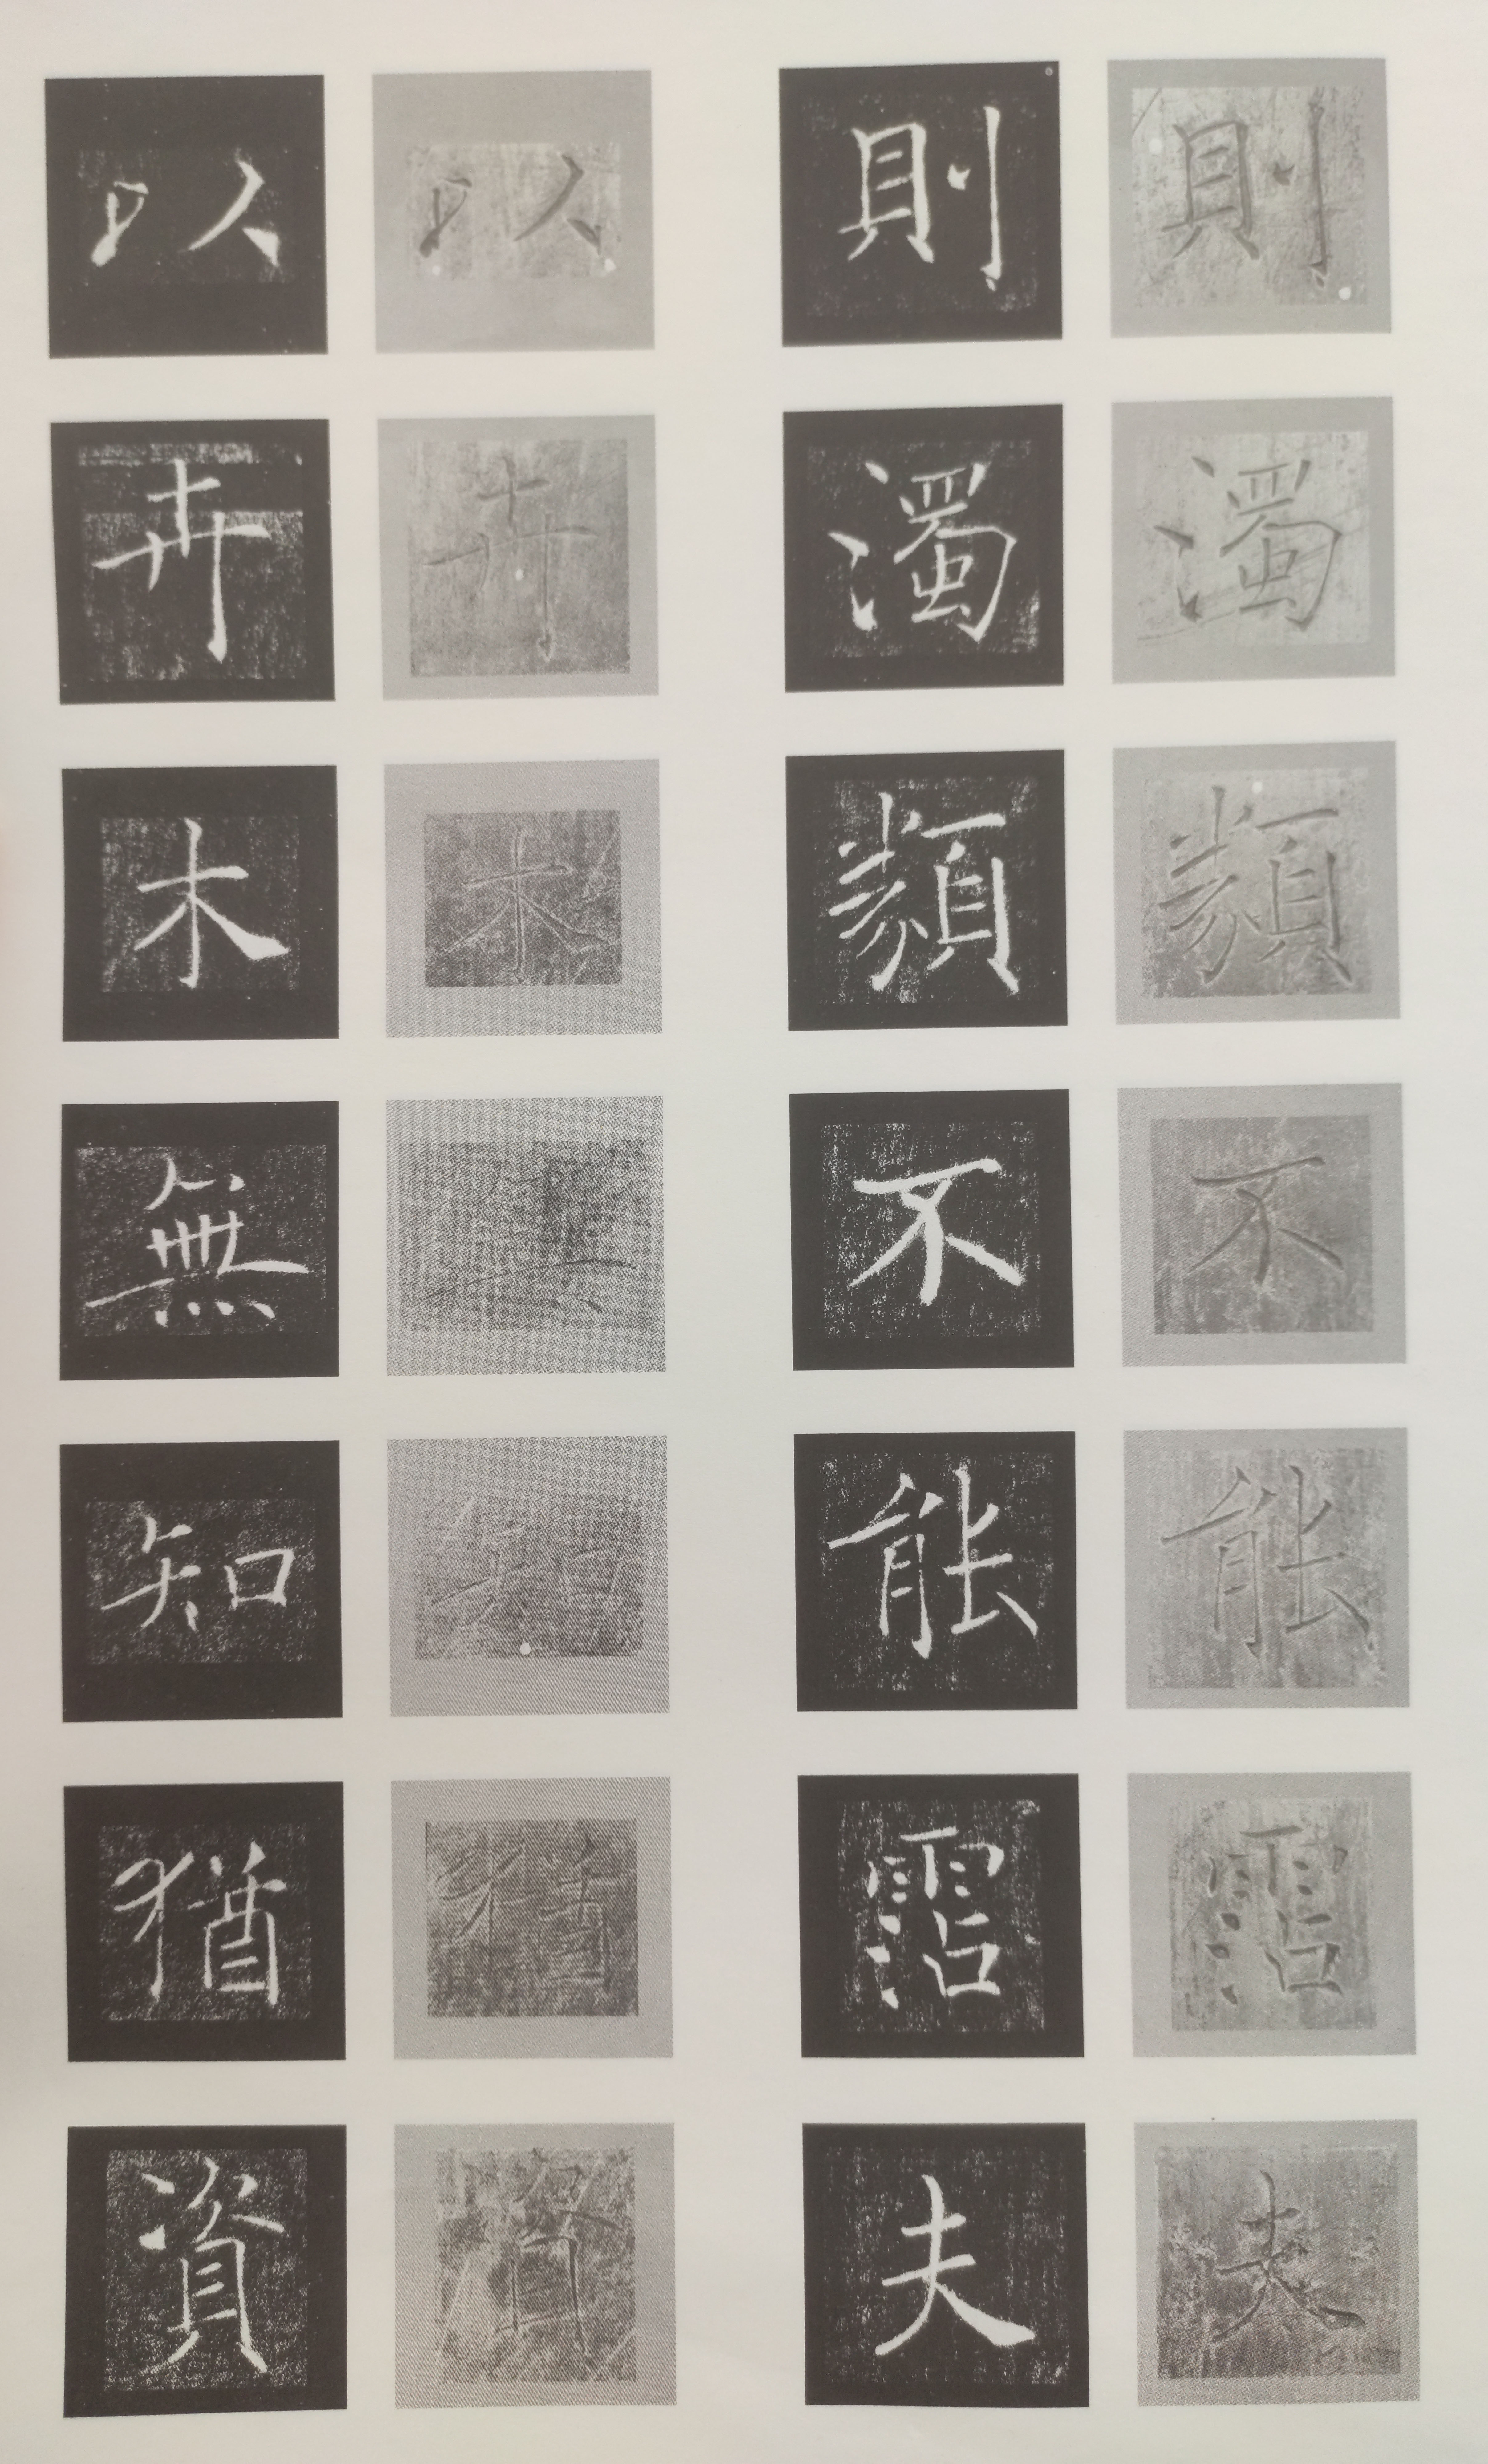 則濁類不能霑夫
則濁類不能霑夫
以卉木無知猶資
以卉木無知猶資